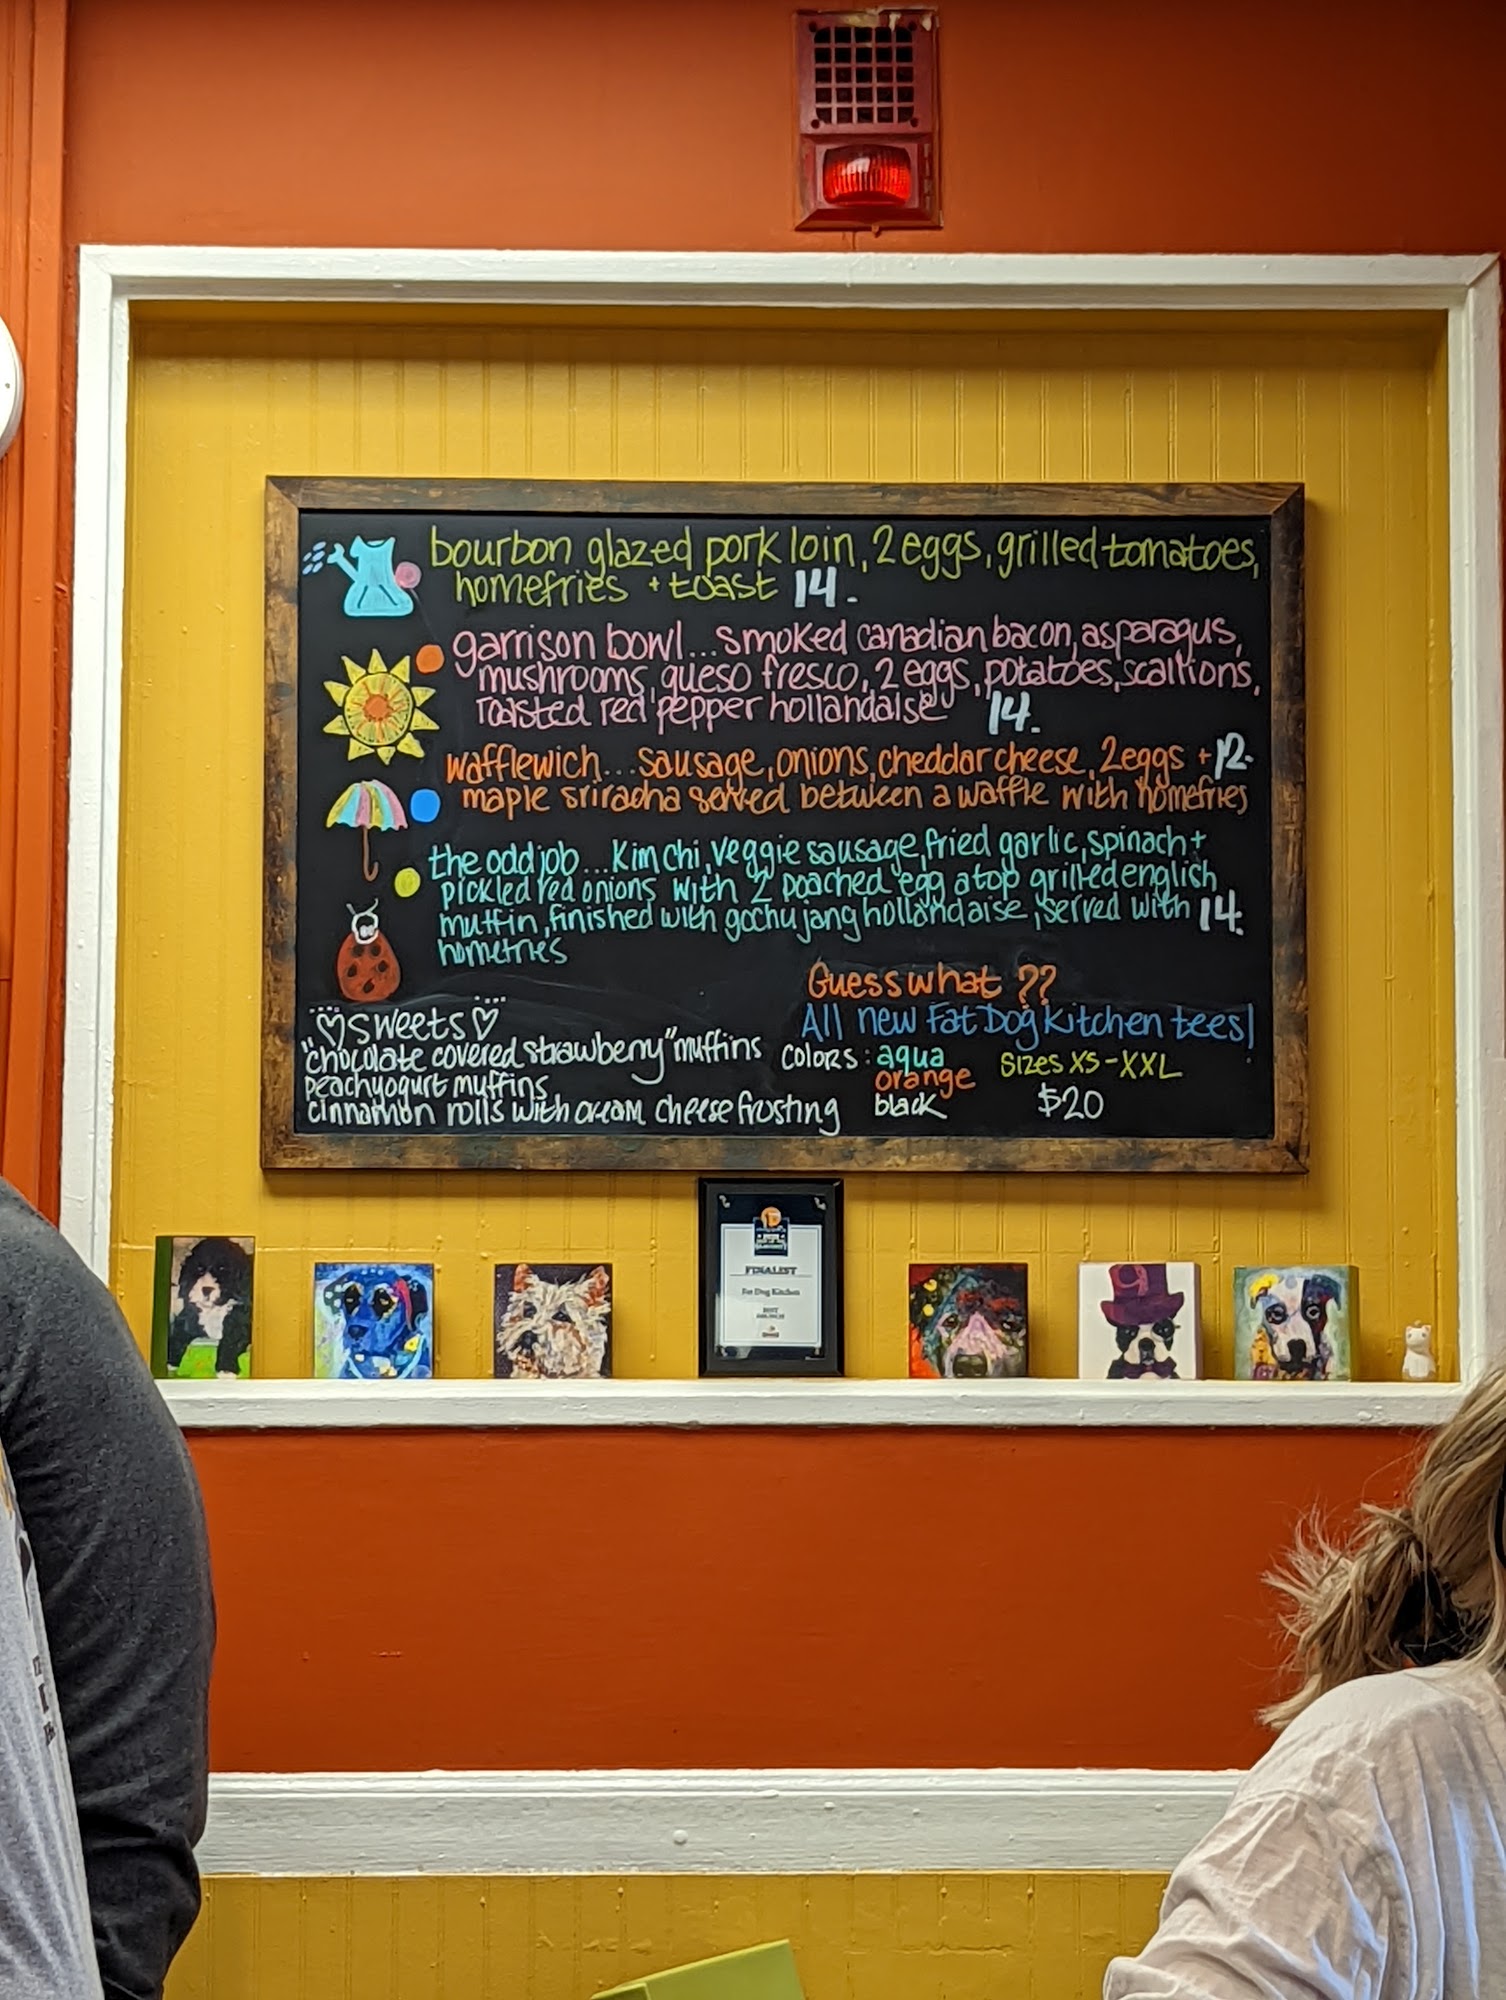 bourbon glazed pork loin, 2 eggs, grilled tomatoes,
homefries + toast 14.
garrison bowl... smoked canadian bacon, asparagus,
mushrooms, queso fresco, 2 eggs, potatoes, scallions,
roasted red pepper hollandaise 14.
wafflewich... sausage, onions, cheddar cheese, 2 eggs + 12.
maple sriracha served between a waffle with homefries
the odd job... Kim chi, veggie sausage, fried garlic, spinach +
pickled red onions with 2 poached egg atop grilled english
muffin, finished with gochujang hollandaise, served with 14.
homefries
Guess what ??
All new Fat Dog Kitchen tees!
colors: aqua sizes XS-XXL
orange
black $20
sweets
"chocolate covered strawberry" muffins
peach yogurt muffins
cinnamon rolls with cream cheese frosting
FINALIST
Fat Dog Kitchen